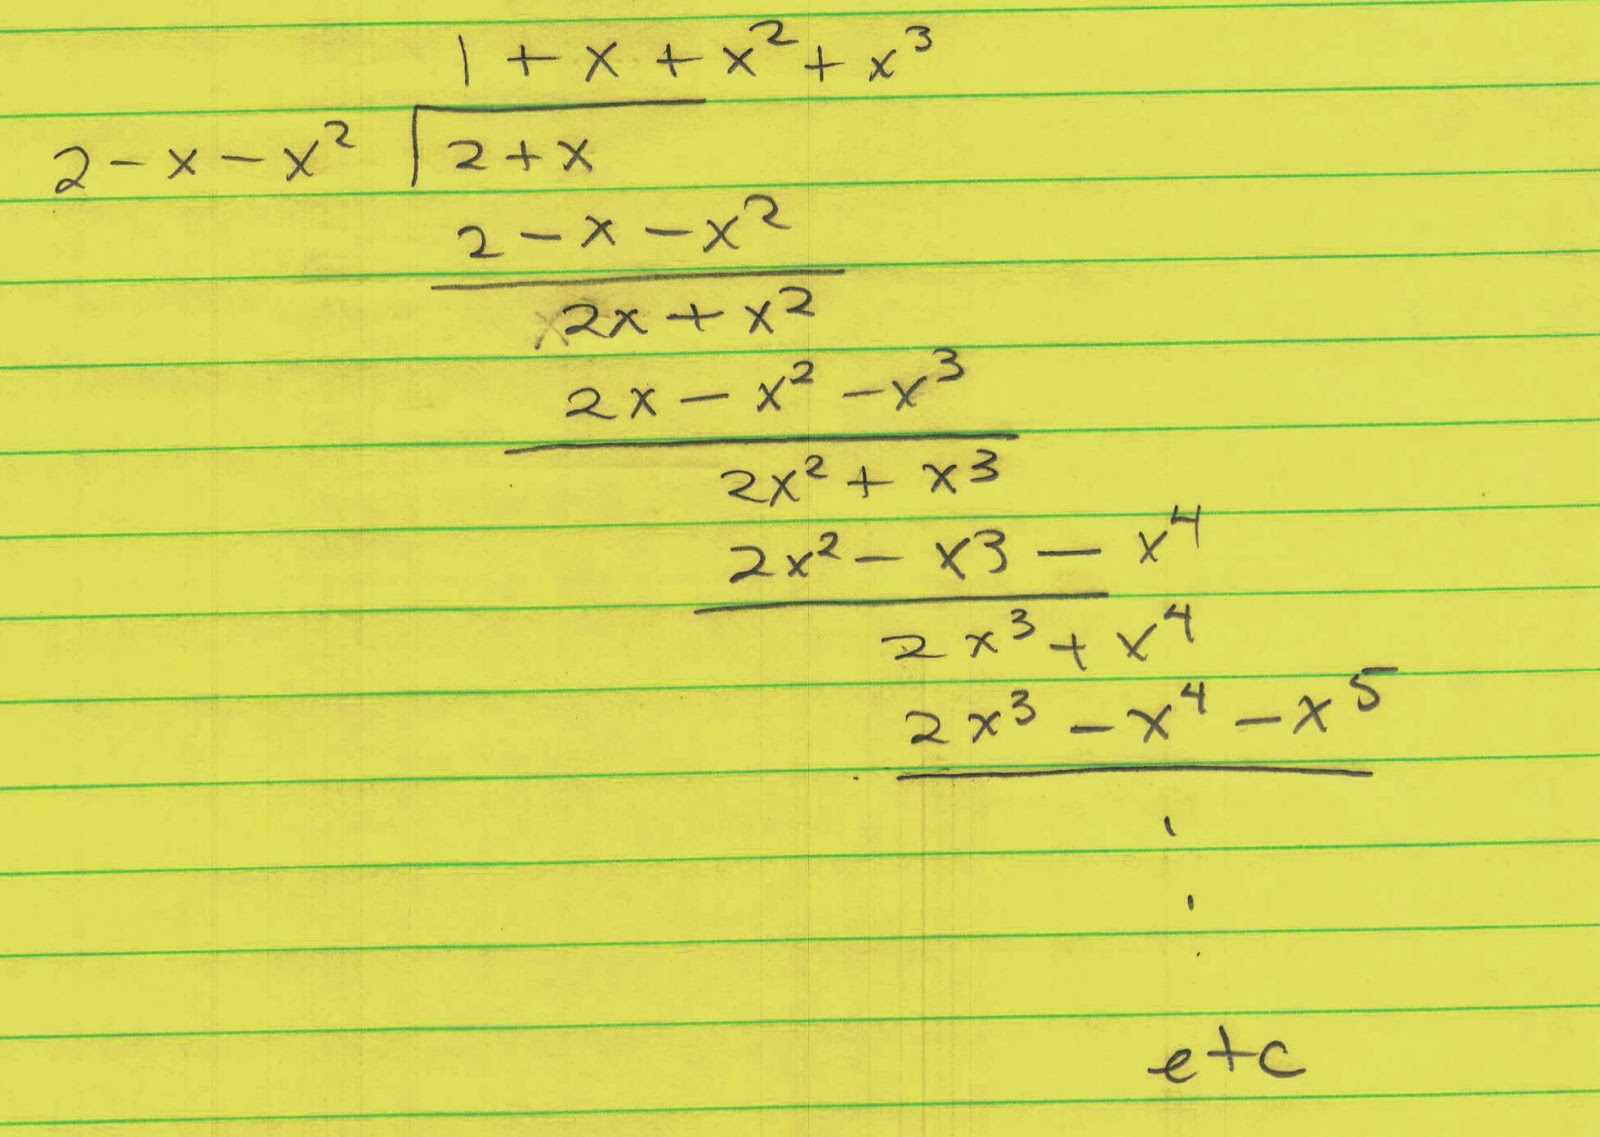 1 + x + x² + x³
2 - x - x² 2 + x
2 - x - x²
2x + x²
2x - x² - x³
2x² + x³
2x² - x³ - x⁴
2x³ + x⁴
2x³ - x⁴ - x⁵
.
.
.
etc